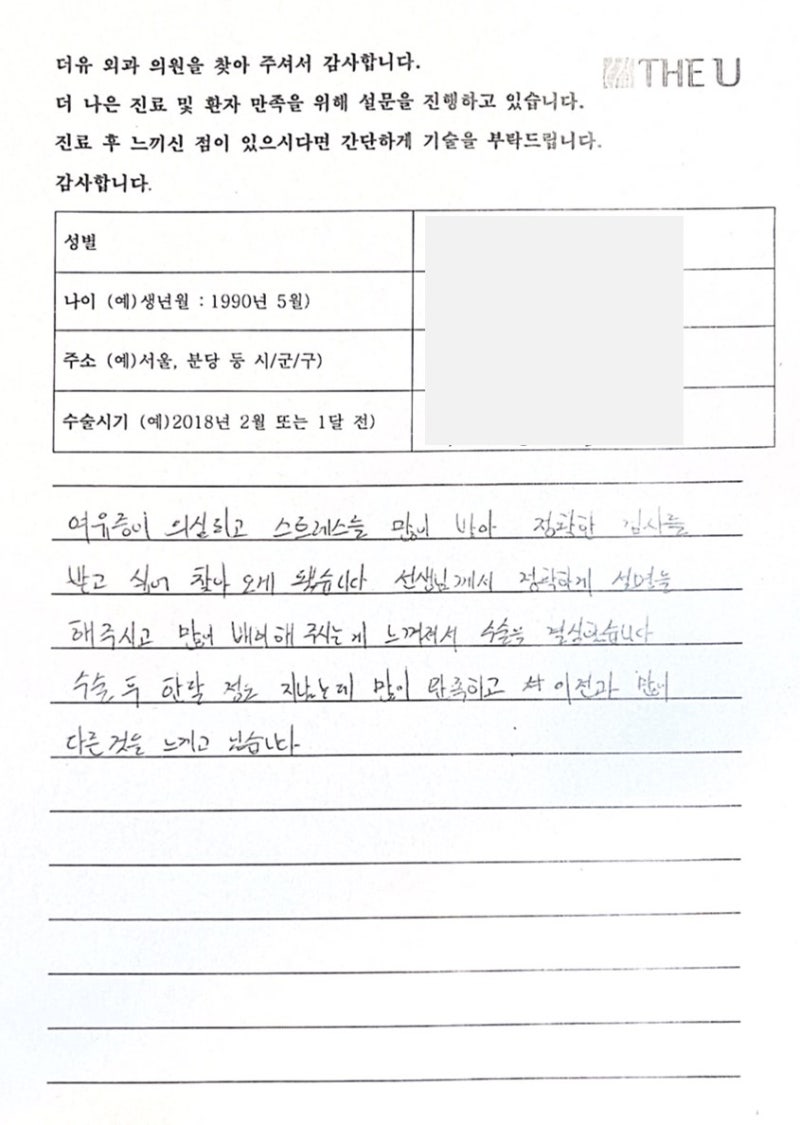 더유 외과 의원을 찾아 주셔서 감사합니다.
THE U
더 나은 진료 및 환자 만족을 위해 설문을 진행하고 있습니다.
진료 후 느끼신 점이 있으시다면 간단하게 기술을 부탁드립니다.
감사합니다.
성별
나이 (예)생년월 : 1990년 5월)
주소 (예)서울, 분당 등 시/군/구)
수술시기 (예)2018년 2월 또는 1달 전)
여유증이 의심되고 스트레스를 많이 받아 정확한 검사를
받고 싶어 찾아 오게 됐습니다 선생님께서 정확하게 설명을
해주시고 많이 배려해 주시는게 느껴져서 수술을 결심했습니다
수술 후 한달 정도 지났는데 많이 만족하고 이전과 많이
다른것을 느끼고 있습니다